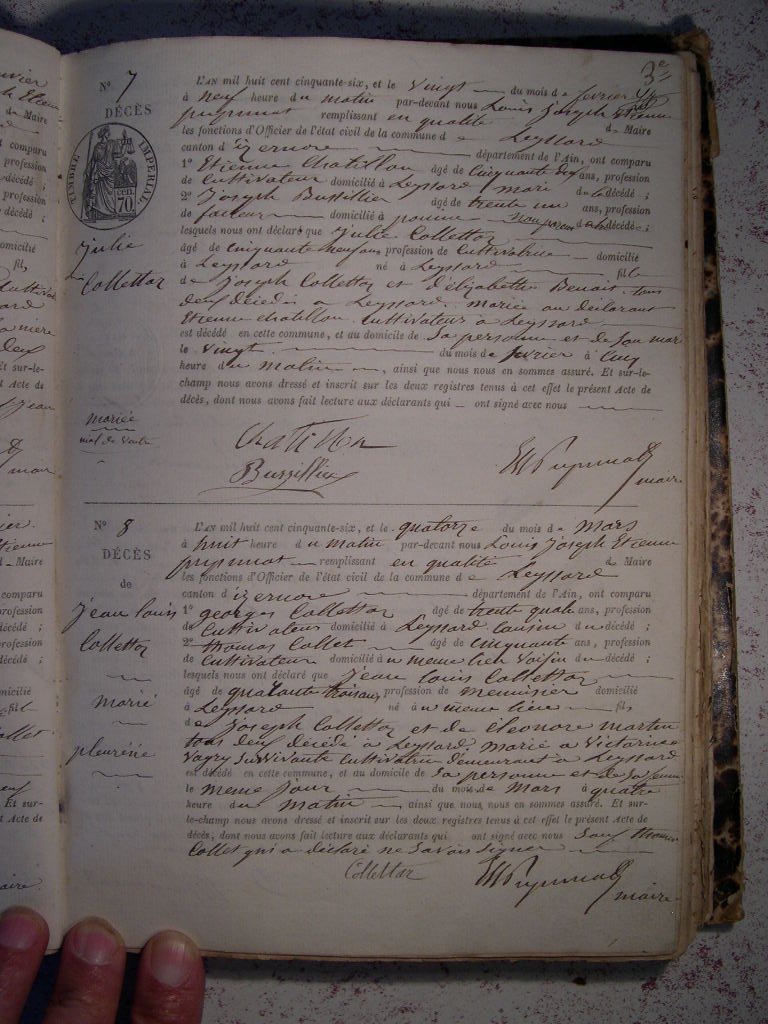 3e
N° 7
DÉCÈS
TIMBRE IMPÉRIAL
70 cen.
julie
Collettaz
mariée
L'AN mil huit cent cinquante-six, et le vingt du mois de fevrier
à neuf heure du matin par-devant nous Louis joseph Etienne
remplissant en qualité de Maire
les fonctions d'Officier de l'état civil de la commune de Leyssard
canton d'izernore département de l'Ain, ont comparu
1° Etienne Chatillon âgé de Cinquante ans, profession
de Cultivateur domicilié à Leyssard mari de la décédé ;
2° joseph Bustillier âgé de trente un ans, de profession
de facteur domicilié à non parent de la décédée ;
lesquels nous ont déclaré que julie Collettaz
âgé de cinquante neuf ans profession de Cultivatrice domicilié
à Leyssard né à Leyssard fille
de joseph Collettaz et d'élizabeth Benoit tous
deux décédés à Leyssard. mariée au déclarant
Etienne chatillon Cultivateur à Leyssard
est décédé en cette commune, et au domicile de sa personne et de son mari
le vingt du mois de fevrier à cinq
heure du matin, ainsi que nous nous en sommes assuré. Et sur-le-
champ nous avons dressé et inscrit sur les deux registres tenus à cet effet le présent Acte de
décès, dont nous avons fait lecture aux déclarants qui ont signé avec nous
Chatillon
maire
N° 8
DÉCÈS
de
jean louis
Collettaz
marié
pleurésie
L'AN mil huit cent cinquante-six, et le quatorze du mois de Mars
à huit heure du matin par-devant nous Louis joseph Etienne
remplissant en qualité de Maire
les fonctions d'Officier de l'état civil de la commune de Leyssard
canton d'izernore département de l'Ain, ont comparu
1° georges Collettaz âgé de trente quatre ans, profession
de Cultivateur domicilié à Leyssard Cousin du décédé ;
2° thomas Collet âgé de cinquante ans, profession
de Cultivateur domicilié au meme lieu Voisin du décédé ;
lesquels nous ont déclaré que jean louis Collettaz
âgé de quarante trois ans profession de menuisier domicilié
à Leyssard né au meme lieu fils
de joseph Collettaz et de éléonore martin
tous deux décédé à Leyssard. marié a Victorine
survivante Cultivatrice demeurant à Leyssard
est décédé en cette commune, et au domicile de sa personne et de sa femme
le meme jour du mois de Mars à quatre
heure du matin ainsi que nous, nous en sommes assuré. Et sur-
le-champ nous avons dressé et inscrit sur les deux registres tenus à cet effet le présent Acte de
décès, dont nous avons fait lecture aux déclarants qui ont signé avec nous Sauf thomas
Collet qui a déclaré ne savoir signer
Collettaz
maire